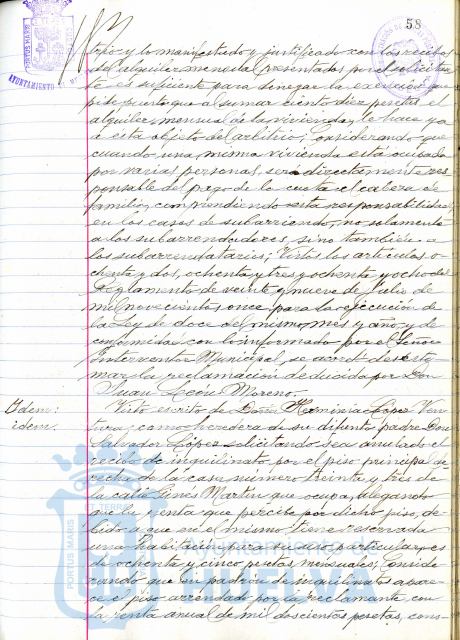 58
trio y lo manifestado y justificado con los recibos
del alquiler mensual presentados por el solicitante
es suficiente para denegar la exención que
pide puesto que al sumar ciento diez pesetas el
alquiler mensual de la vivienda, le hace ya
a ésta objeto del arbitrio; Considerando que
cuando una misma vivienda está ocupada
por varias personas, será directamente res-
ponsable del pago de la cuota el cabeza de
familia, comprendiendo esta responsabilidad,
en los casos de subarriendo, no solamente
a los subarrendadores, sino también a
los subarrendatarios; Vistos los artículos o-
chenta y dos, ochenta y tres y ochenta y ocho del
Reglamento de veinte y nueve de Julio de
mil novecientos once para la ejecución de
la Ley de doce del mismo mes y año, y de
conformidad con lo informado por el Señor
Interventor Municipal, se acordó desesti-
mar la reclamación deducida por Don
Juan León Moreno.
Idem:
idem.
Visto escrito de Doña Herminia López Ven-
tura, como heredera de su difunto padre Don
Salvador López solicitando sea anulado el
recibo de inquilinato por el piso principal de-
recha de la casa número treinta y tres de
la calle Ginés Martín que ocupa, alegando
que la renta que percibe por dicho piso, de-
bido a que en el mismo tiene reservada
una habitación para usos particulares es
de ochenta y cinco pesetas mensuales; Conside-
rando que en padrón de inquilinatos apare-
ce el piso arrendado por la reclamante con
la renta anual de mil doscientas pesetas, cons-
PORTUS MARIS
AYUNTAMIENTO
Ayuntamiento de
PORTUS MARIS ET TERRE